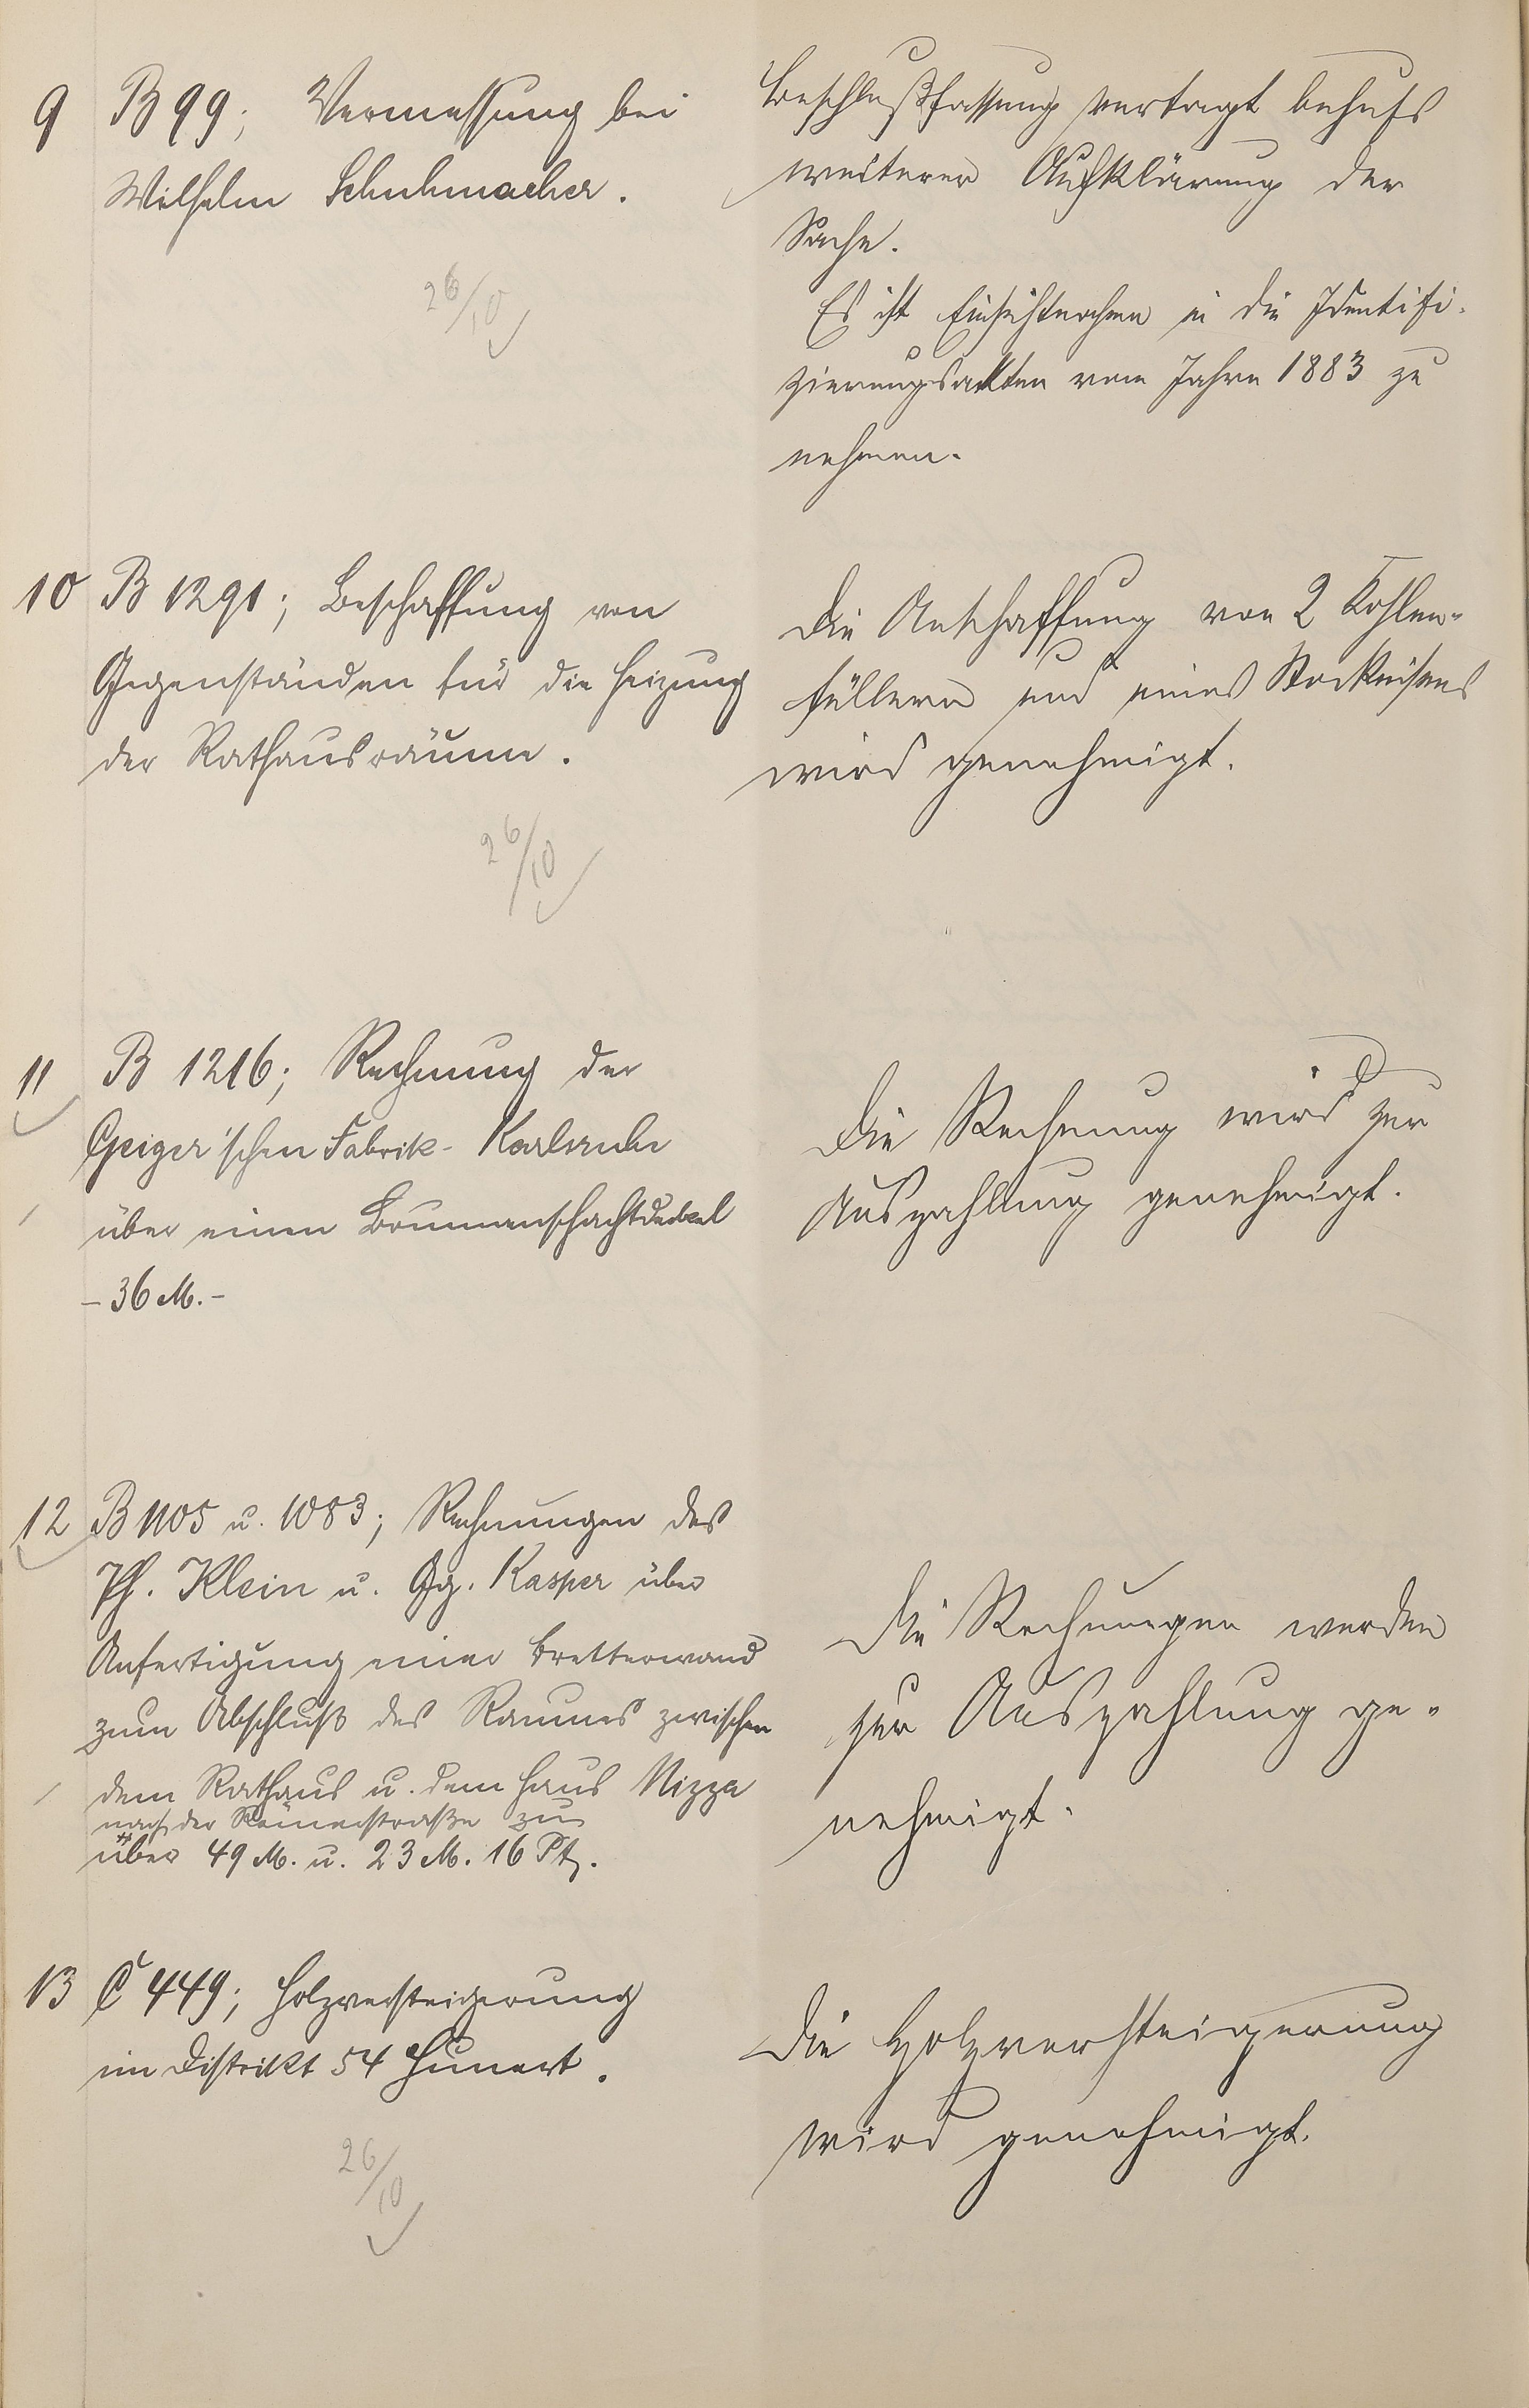 9 B 99; Vermessung bei
Wilhelm Schuhmacher.
26/10
Beschlußfassung vertagt behufs
weiterer Aufklärung der
Sache.
Es ist Einsichtnahme in die Identifi-
zierungsakten vom Jahre 1883 zu
nehmen.
10 B 1291; Beschaffung von
Gegenständen für die Heizung
der Rathausräume.
26/10
Die Anschaffung von 2 Kohlen-
füllern und eines Stocheisens
wird genehmigt.
11 B 1216; Rechnung der
Geiger'schen Fabrik - Karlsruhe
über einen Brunnenschachtdeckel
- 36 M. -
Die Rechnung wird zur
Auszahlung genehmigt.
12 B 1105 u. 1083; Rechnungen des
Ph. Klein u. Gg. Kasper über
Anfertigung einer Bretterwand
zum Abschluß des Raumes zwischen
dem Rathaus u. dem Haus Nizza
nach der Römerstraße zu
über 49 M. u. 23 M. 16 Pf.
Die Rechnungen werden
zur Auszahlung ge-
nehmigt.
13 C 449; Holzversteigerung
im Distrikt 54 Hunert.
26/10
Die Holzversteigerung
wird genehmigt.